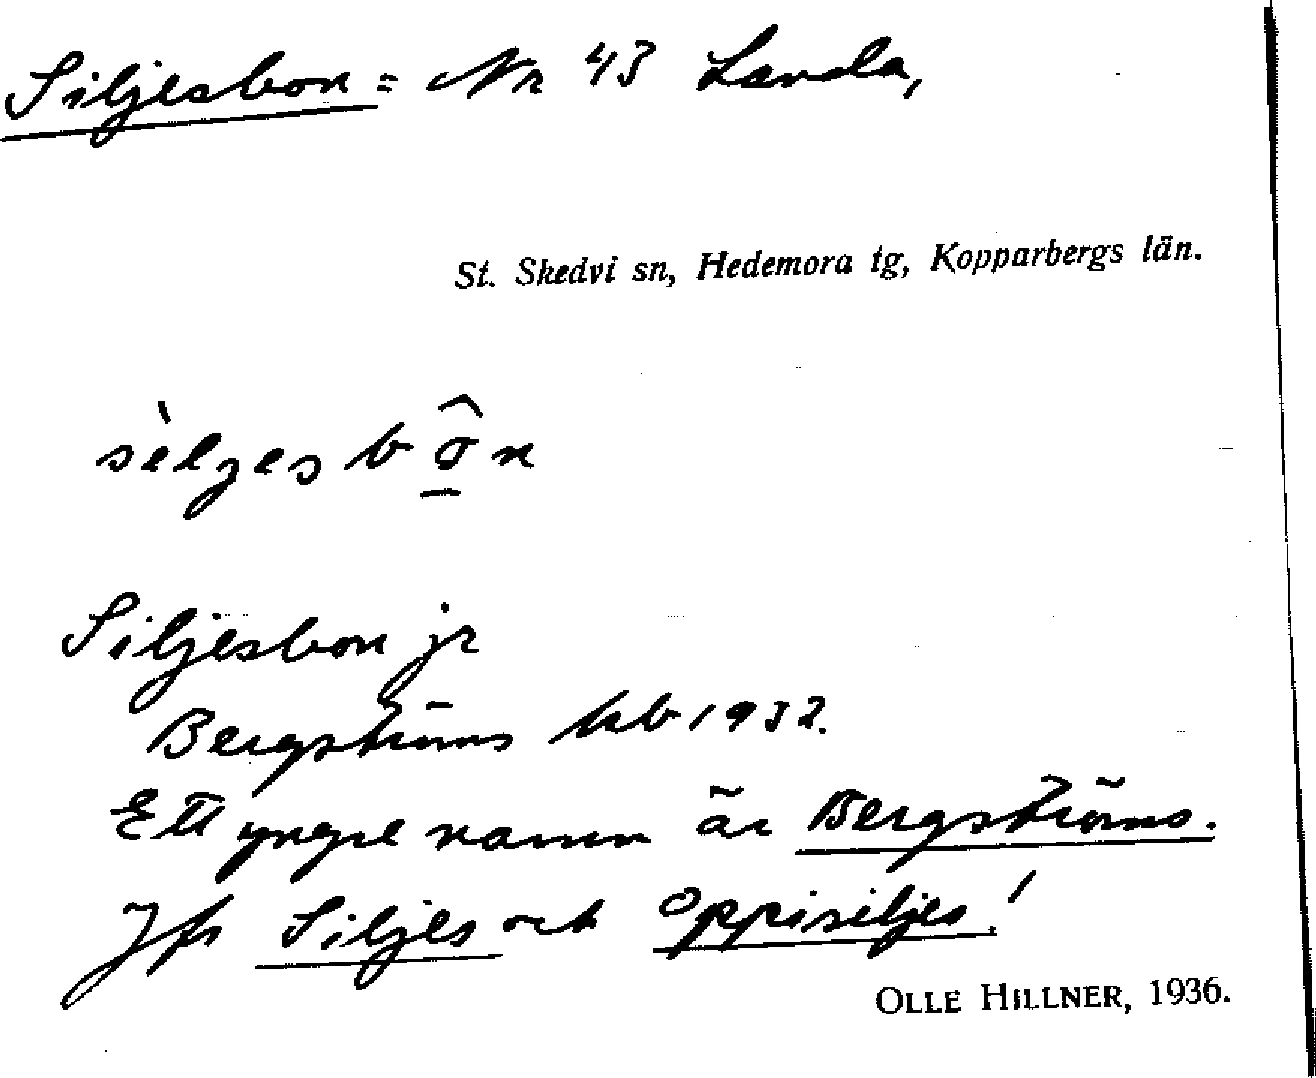 Siljesbon = Nr 43 Landa,
St. Skedvi sn, Hedemora tg, Kopparbergs län.
sèljesbô̱n
Siljesbon jr
Bergströms kb 1932.
Ett yngre namn är Bergströms.
Jfr Siljes och Oppisiljes!
OLLE HILLNER, 1936.